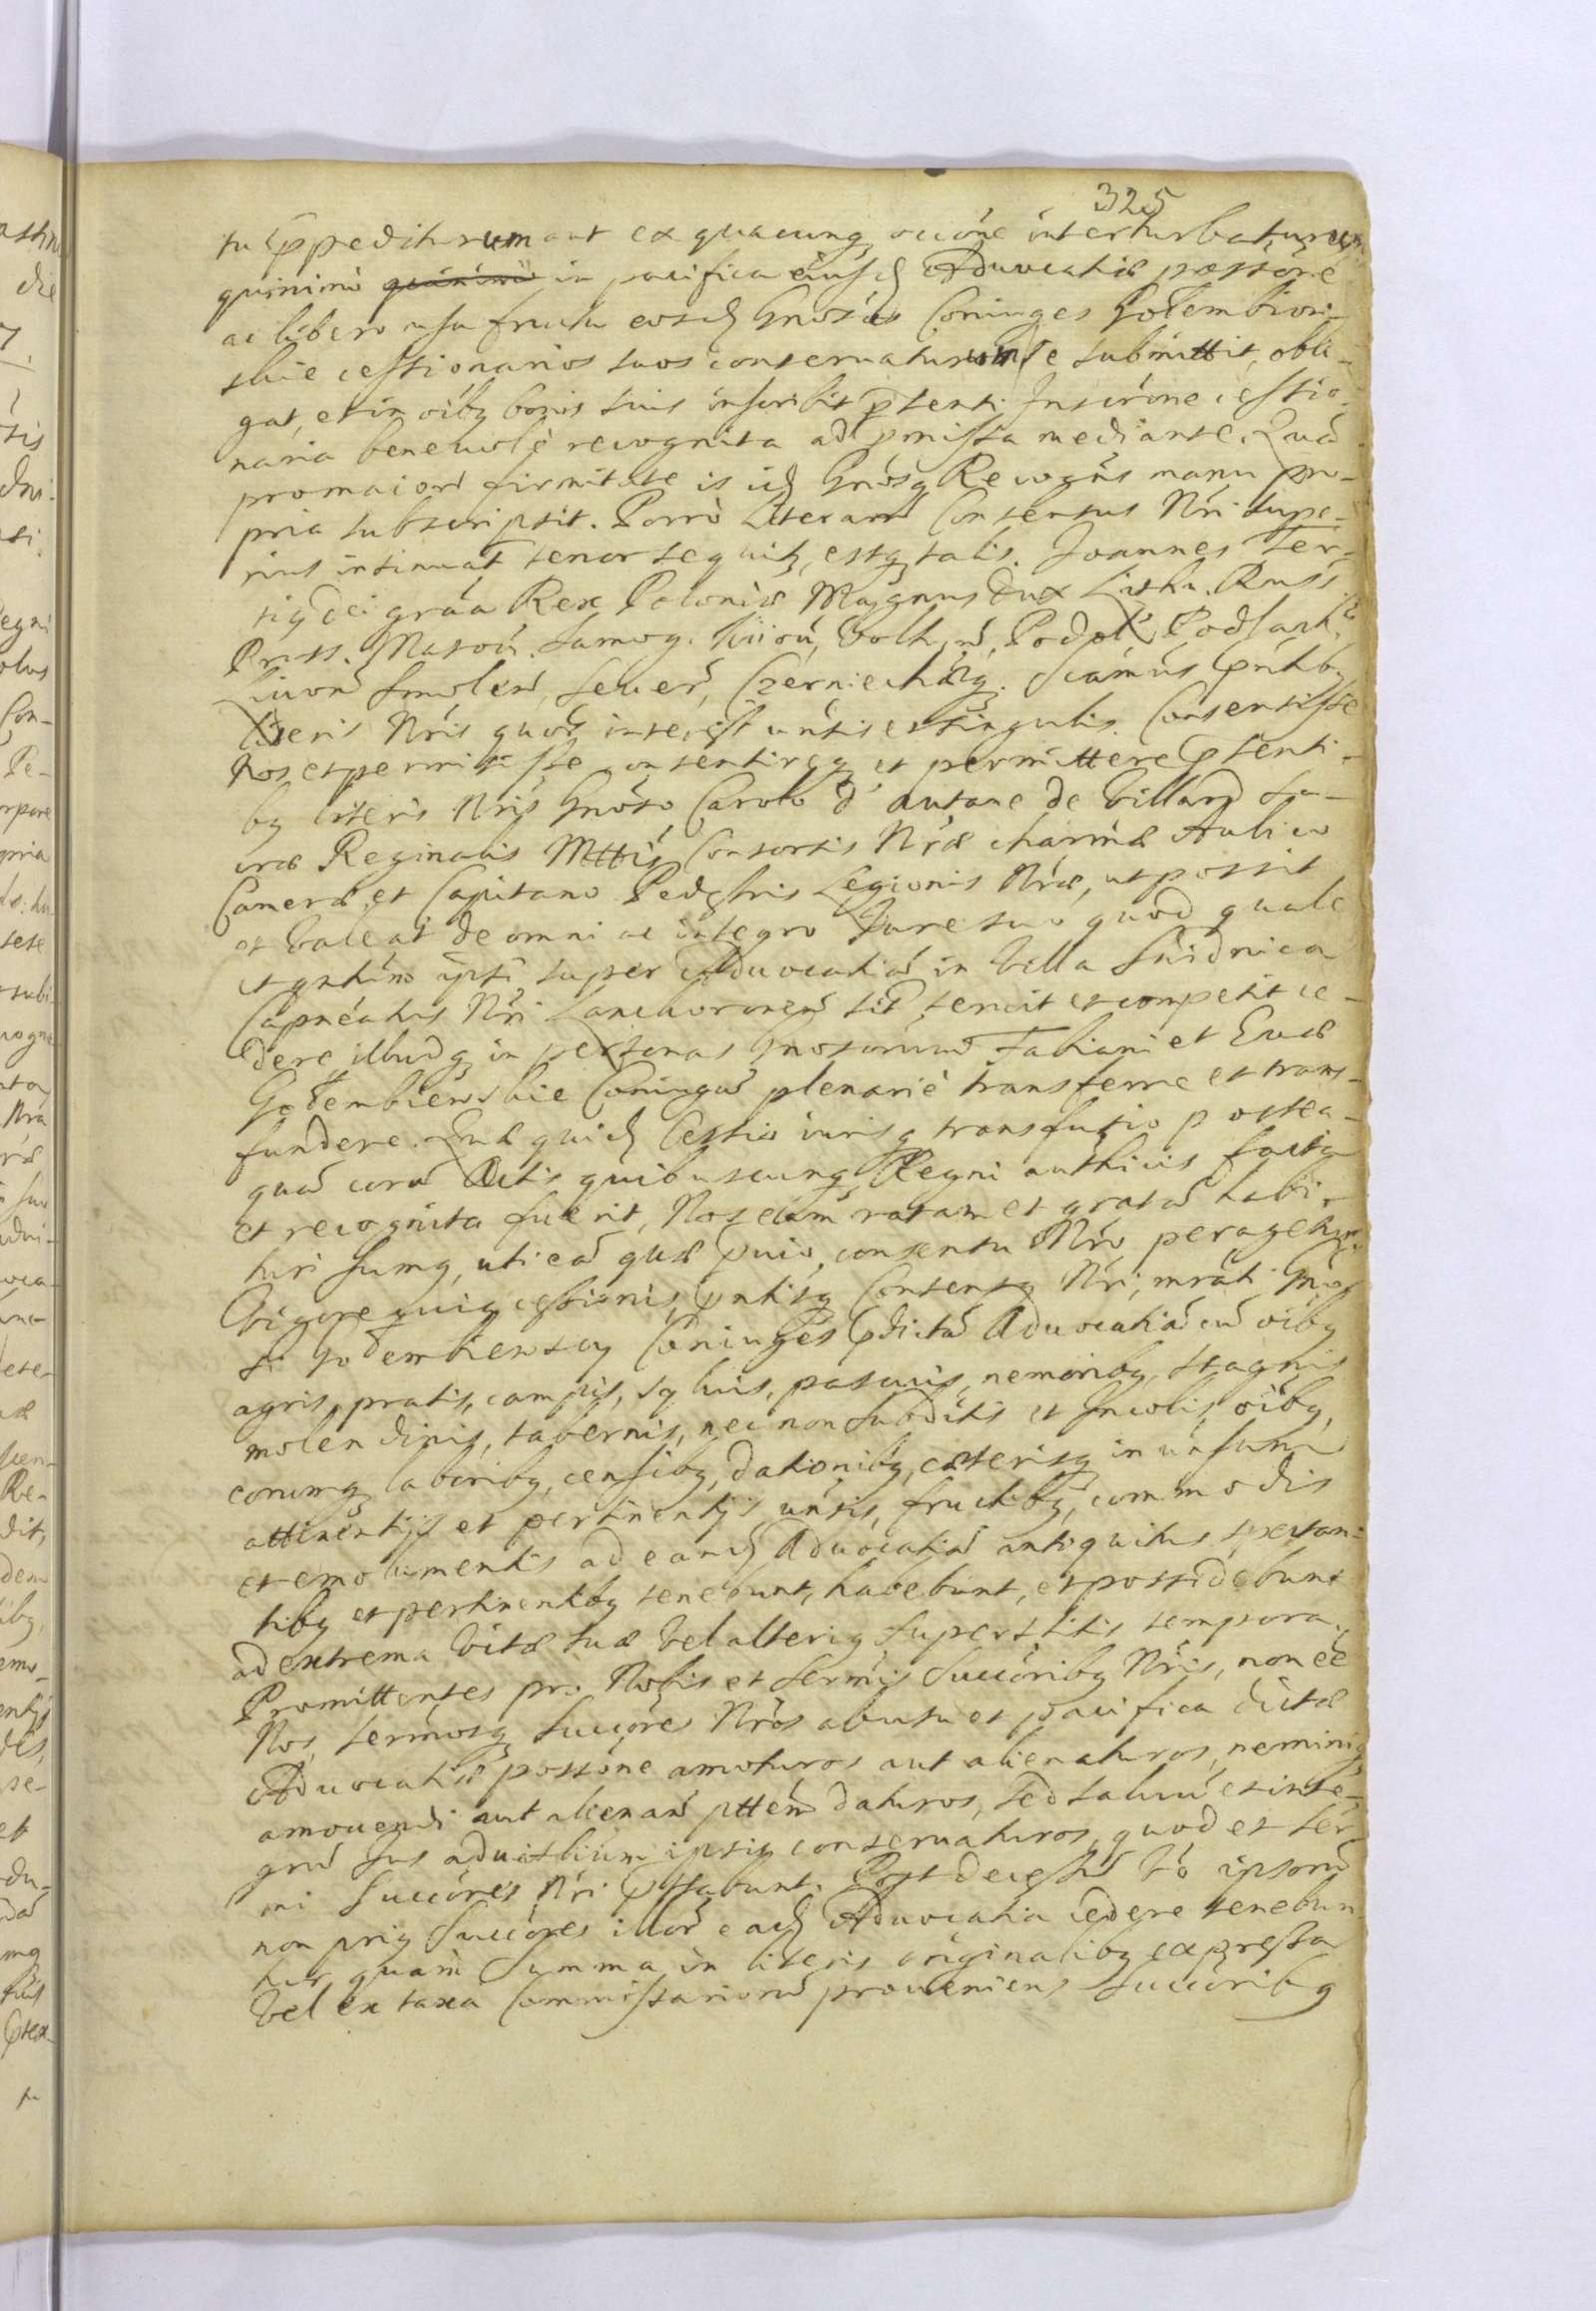 325
tu eppediturum aut ex quacunq occióne interturbaturum
quinimò quinimò in pacifica eiusd Aduocatiæ possone
ac libero usu fructu eosd Gnósos Coniuges Gołembiow-
skie cessionarios suos conseruaturum se submittit, obli-
gat, et in oibq bonis suis inscribit psenti Inscrióne cessio-
naria beneuolè recognita ad pmissa mediante. Quã
pro maiori firmitate is id Gnósq Recogñs manu pro-
pria subscripsit. Porrò Literarũ Consensus Nri supe-
rius insinuat tenor sequit, estq talis. Joannes Ter-
tiq dei gráa Rex Poloniæ Magnus Dux Lithu. Russ
Pruss. Masou. Samog. Kiiou, Volhyń, Podol, Podlach
Liuoń Smoleń, Seuer, Czerniechq. Scimus pntibq
literis Nris quor interest uńsis et singulis. Consensisse
Nos et permisisse consentireq et permittere psenti-
bq literis Nris Gnóso Carolo d'Autane de Villard Sa-
cræ Reginalis Mttis Consortis Nræ charmæ Aulico
Cameræ et Capitano Pedestris Legionis Nræ, ut possit
et valeat de omni ac integro Jure suo quod quale
et qntũno ipsi super Aduocatiã in Villa Swidnica
Capneatus Nri Lanckoroneń sit seruit et competit ce-
dere, illudq in personas Gnosorum Fabiani et Euæ
Gołembiewskie Coniugũ plenariè transferre et trans-
fundere. Quæ quid Cessio iurisq transfusio postea-
quã corã Actis quibuscunq Regni authicis facta
et recognita fuerit, Nos eam ratam et gratã habi-
turi sumq, uti eã quæ puio consensu Nro peragetur.
Vigore cuiq cessionis pntisq Consensq Nri, mrati Gnó-
si Gołembiewscy Coniuges pdictã Aduocatiã cũ oibq
agris, pratis, campis, syluis, pascuis, nemoribq, stagnis
molendinis, tabernis, nec non Subditis et Incolis oibq,
eorumq laboribq, censibq, dationibq, cæterisq in uńsum
attinentijs et pertinentijs uńsis, fructibq, commodis
et emolumentis ad eand Aduocatiã antiquitus spectan-
tibq et pertinentibq tenebunt, habebunt, et possidebunt
ad extrema vitæ suæ vel alteriq superstitis tempora.
Promittentes pro Nobis et Sermis Succóribq Nris, non eé
Nos, Sermosq Succóres Nros ab usu et pacifica dictæ
Aduocatiæ possóne amoturos aut alienaturos, neminiq
amouendi aut alienań pttém daturos, sed saluũ et inte-
grũ Jus aduitlium ipsis conseruaturos, quod et Ser-
mi Succóres Nri pstabunt. Post decessũ vò ipsorũ
non priq Succóres illor ead Aduocatia cedere tenebun
tur, quàm Summa in literis originalibq expressa
vel ex taxa Commissariorũ proueniens Succóribq